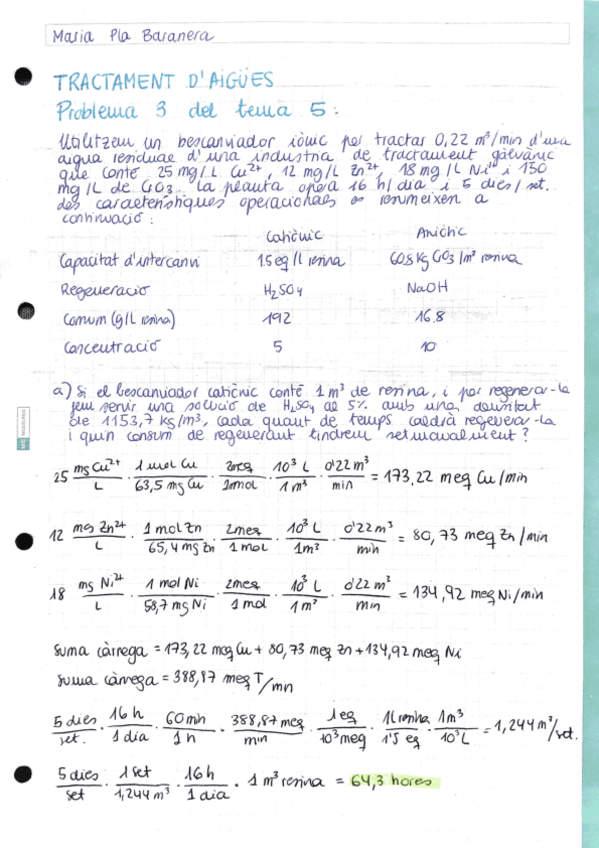 Maria Pla Baranera
TRACTAMENT D'AIGÜES
Problema 3 del tema 5:
Utilitzem un bescanviador iònic per tractar 0,22 m³/min d'una
aigua residual d'una indústria de tractament galvànic
que conté 25 mg/L Cu²⁺, 12 mg/L Zn²⁺, 18 mg/L Ni²⁺ i 150
mg/L de CrO3. La planta opera 16 h/dia i 5 dies/set.
Les característiques operacionals es resumeixen a
continuació:
Catiònic Aniònic
Capacitat d'intercanvi 1.5 eq/L resina 60.8 Kg CrO3/m³ resina
Regeneració H2SO4 NaOH
Consum (g/L resina) 192 16.8
Concentració 5 10
a) Si el bescanviador catiònic conté 1 m³ de resina, i per regenerar-la
fem servir una solució de H2SO4 al 5% amb una densitat
de 1153,7 kg/m³, cada quant de temps caldrà regenerar-la
i quin consum de regenerant tindrem setmanalment?
25 mg Cu²⁺/L · 1 mol Cu/63,5 mg Cu · 2meq/1mol · 10³ L/1 m³ · 0'22 m³/min = 173,22 meq Cu/min
12 mg Zn²⁺/L · 1 mol Zn/65,4 mg Zn · 2meq/1 mol · 10³ L/1m³ · 0'22 m³/min = 80,73 meq Zn/min
18 mg Ni²⁺/L · 1 mol Ni/58,7 mg Ni · 2meq/1 mol · 10³ L/1 m³ · 0'22 m³/min = 134,92 meq Ni/min
Suma càrrega = 173,22 meq Cu + 80,73 meq Zn + 134,92 meq Ni
Suma càrrega = 388,87 meq T/min
5 dies/set. · 16 h/1 dia · 60 min/1 h · 388,87 meq/min · 1 eq/10³ meq · 1L resina/1'5 eq · 1 m³/10³ L = 1,244 m³/set.
5 dies/set · 1 set/1,244 m³ · 16 h/1 dia · 1 m³ resina = 64,3 hores